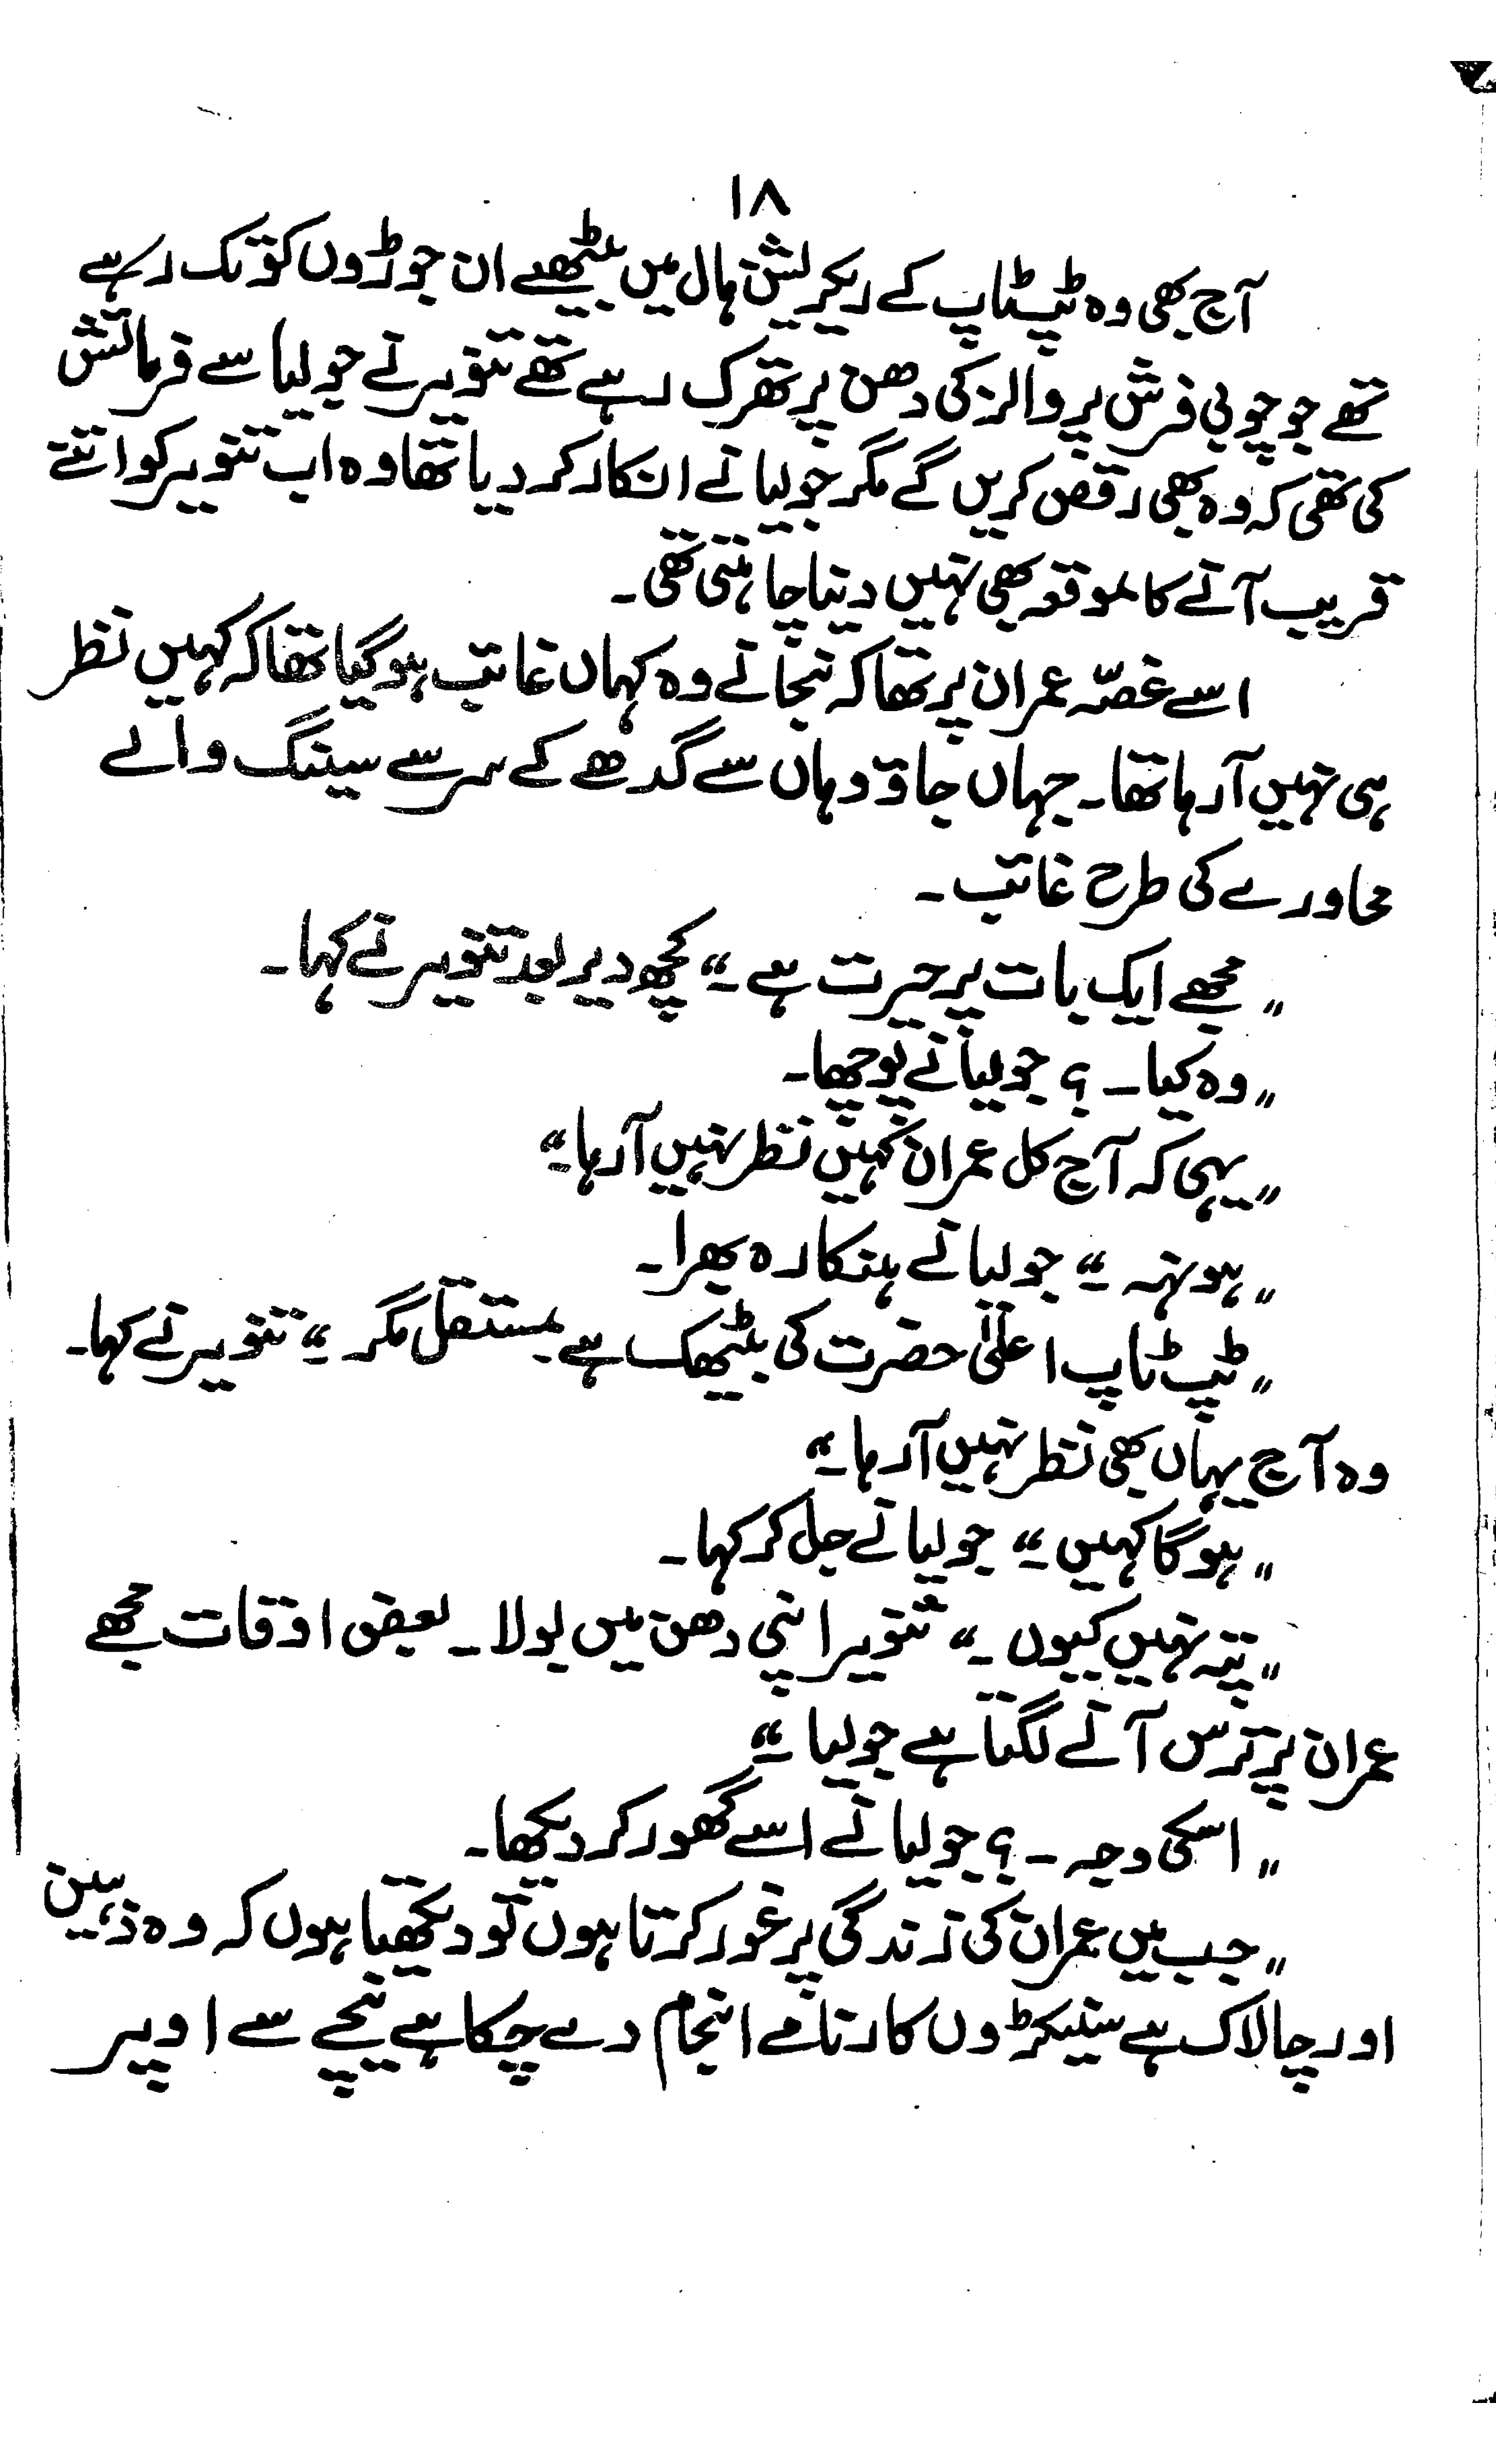 ۱۸
آج بھی وہ ٹپ ٹاپ کے ریکریشن ہال میں بیٹھے ان جوڑوں کو تک رہے
تھے جو چوبی فرش پر والز کی دھن پر تھرک رہے تھے تنویر نے جولیا سے فرمائش
کی تھی کہ وہ بھی رقص کریں گے مگر جولیا نے انکار کر دیا تھا وہ اب تنویر کو اتنے
قریب آنے کا موقعہ بھی نہیں دینا چاہتی تھی۔
اسے غصّہ عمران پر تھا کہ نجانے وہ کہاں غائب ہو گیا تھا کہ کہیں نظر
ہی نہیں آرہا تھا۔ جہاں جاؤ وہاں سے گدھے کے سر سے سینگ والے
محاورے کی طرح غائب۔
"مجھے ایک بات پر حیرت ہے۔" کچھ دیر بعد تنویر نے کہا۔
"وہ کیا۔؟ جولیا نے پوچھا۔
"یہی کہ آج کل عمران کہیں نظر نہیں آرہا۔"
"ہونہہ۔" جولیا نے ہنکارہ بھرا۔
"ٹپ ٹاپ اعلیٰ حضرت کی بیٹھک ہے مستقل مگر۔" تنویر نے کہا۔
وہ آج یہاں بھی نظر نہیں آرہا۔"
"ہوگا کہیں۔" جولیا نے جل کر کہا۔
"پتہ نہیں کیوں۔" تنویر اپنی دھن میں بولا۔ بعض اوقات مجھے
عمران پر ترس آنے لگتا ہے جولیا۔"
"اسکی وجہ۔؟ جولیا نے اسے گھور کر دیکھا۔
"جب میں عمران کی زندگی پر غور کرتا ہوں تو دیکھتا ہوں کہ وہ ذہین
اور چالاک ہے سینکڑوں کارنامے انجام دے چکا ہے نیچے سے اوپر